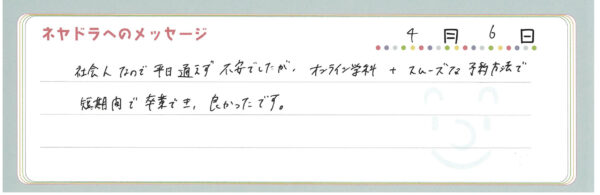 ネヤドラへのメッセージ
4月6日
社会人なので平日通えず不安でしたが、オンライン学科 + スムーズな予約方法で
短期間で卒業でき、良かったです。